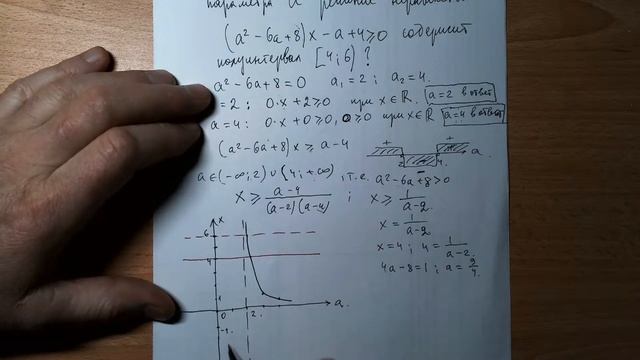 параметра а решение неравенства
(a² - 6a + 8)x - a + 4 ≥ 0 содержит
полуинтервал [4; 6) ?
a² - 6a + 8 = 0 a₁ = 2 ; a₂ = 4.
= 2 ; 0·x + 2 ≥ 0 при x ∈ R. a = 2 в ответ
a = 4 : 0·x + 0 ≥ 0, 0 ≥ 0 при x ∈ R a = 4 в ответ
(a² - 6a + 8)x ≥ a - 4
+ - + 2 4 a
a ∈ (-∞; 2) ∪ (4; +∞), т.е. a² - 6a + 8 > 0
x ≥ (a-4)/((a-2)(a-4)) ; x ≥ 1/(a-2)
x = 1/(a-2)
x = 4 ; 4 = 1/(a-2)
4a - 8 = 1 ; a = 9/4
x
6
4
1
0 2 a
-1